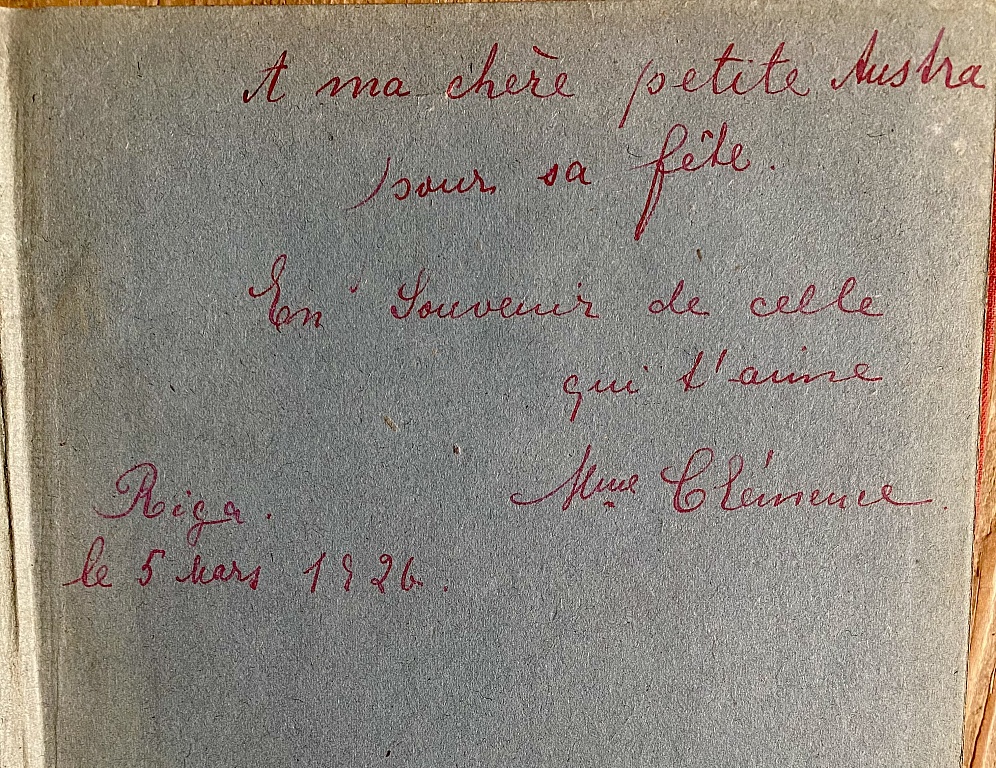 A ma chère petite Austra
pour sa fête.
En Souvenir de celle
qui t'aime
Mme Clémence.
Riga.
le 5 Mars 1926.